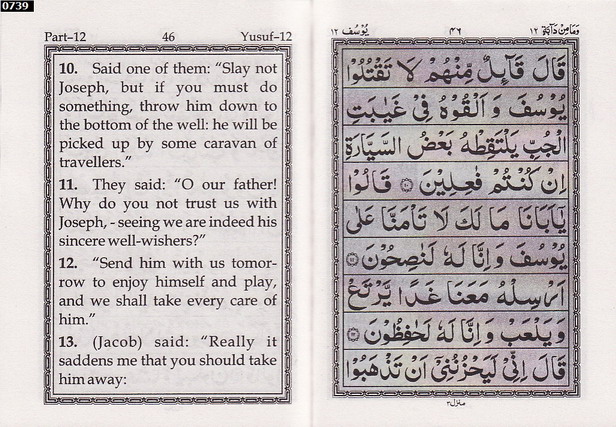 0739
Part-12 46 Yusuf-12
10. Said one of them: “Slay not
Joseph, but if you must do
something, throw him down to
the bottom of the well: he will be
picked up by some caravan of
travellers.”
11. They said: “O our father!
Why do you not trust us with
Joseph, - seeing we are indeed his
sincere well-wishers?”
12. “Send him with us tomor-
row to enjoy himself and play,
and we shall take every care of
him.”
13. (Jacob) said: “Really it
saddens me that you should take
him away:
وَمَا مِنْ دَآبَّةٍ ١٢ ۴۶ يُوْسُف ١٢
قَالَ قَآئِلٌ مِّنْهُمْ لَا تَقْتُلُوْا
يُوْسُفَ وَ اَلْقُوْهُ فِيْ غَيٰبَتِ
الْجُبِّ يَلْتَقِطْهُ بَعْضُ السَّيَّارَةِ
اِنْ كُنْتُمْ فٰعِلِيْنَ ١٠ قَالُوْا
يٰۤاَبَانَا مَا لَكَ لَا تَاْمَنَّا عَلٰى
يُوْسُفَ وَ اِنَّا لَهٗ لَنٰصِحُوْنَ ١١
اَرْسِلْهُ مَعَنَا غَدًا يَّرْتَعْ
وَ يَلْعَبْ وَ اِنَّا لَهٗ لَحٰفِظُوْنَ ١٢
قَالَ اِنِّيْ لَيَحْزُنُنِيْۤ اَنْ تَذْهَبُوْا
منزل ۳